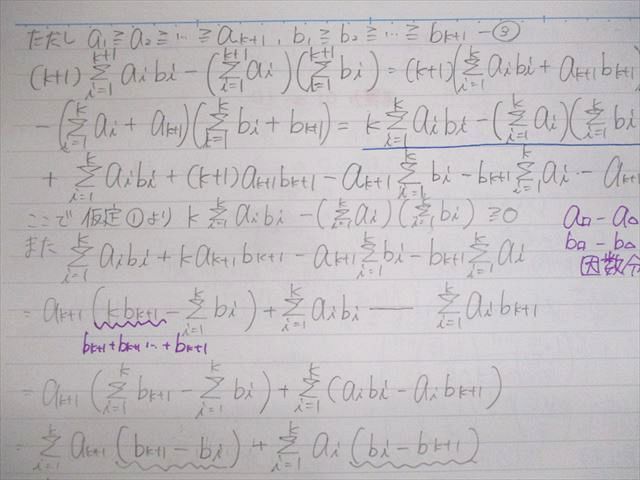 ただし a₁ ≧ a₂ ≧ … ≧ aₖ₊₁, b₁ ≧ b₂ ≧ … ≧ bₖ₊₁ —⑨
(k+1) Σ_{i=1}^{k+1} aᵢbᵢ − (Σ_{i=1}^{k+1} aᵢ)(Σ_{i=1}^{k+1} bᵢ) = (k+1)(Σ_{i=1}^{k} aᵢbᵢ + aₖ₊₁bₖ₊₁)
− (Σ_{i=1}^{k} aᵢ + aₖ₊₁)(Σ_{i=1}^{k} bᵢ + bₖ₊₁) = k Σ_{i=1}^{k} aᵢbᵢ − (Σ_{i=1}^{k} aᵢ)(Σ_{i=1}^{k} bᵢ
+ Σ_{i=1}^{k} aᵢbᵢ + (k+1)aₖ₊₁bₖ₊₁ − aₖ₊₁ Σ_{i=1}^{k} bᵢ − bₖ₊₁ Σ_{i=1}^{k} aᵢ − aₖ₊₁
ここで 仮定①より k Σ_{i=1}^{k} aᵢbᵢ − (Σ_{i=1}^{k} aᵢ)(Σ_{i=1}^{k} bᵢ) ≧0
a□ − a△
また Σ_{i=1}^{k} aᵢbᵢ + k aₖ₊₁bₖ₊₁ − aₖ₊₁ Σ_{i=1}^{k} bᵢ − bₖ₊₁ Σ_{i=1}^{k} aᵢ
b□ − b△
因数分
= aₖ₊₁ (kbₖ₊₁ − Σ_{i=1}^{k} bᵢ) + Σ_{i=1}^{k} aᵢbᵢ — Σ_{i=1}^{k} aᵢbₖ₊₁
bₖ₊₁+bₖ₊₁ … + bₖ₊₁
= aₖ₊₁ (Σ_{i=1}^{k} bₖ₊₁ − Σ_{i=1}^{k} bᵢ) + Σ_{i=1}^{k} (aᵢbᵢ − aᵢbₖ₊₁)
= Σ_{i=1}^{k} aₖ₊₁ (bₖ₊₁ − bᵢ) + Σ_{i=1}^{k} aᵢ (bᵢ − bₖ₊₁)